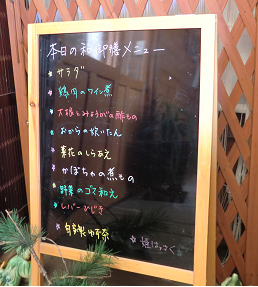 本日の和御膳メニュー
* サラダ
* 鶏肉のワイン煮
* 大根とみょうがの酢もの
* おからの炊いたん
* 菜花のしらあえ
* かぼちゃの煮もの
* 野菜のゴマ和え
* レバーひじき
* 自家製